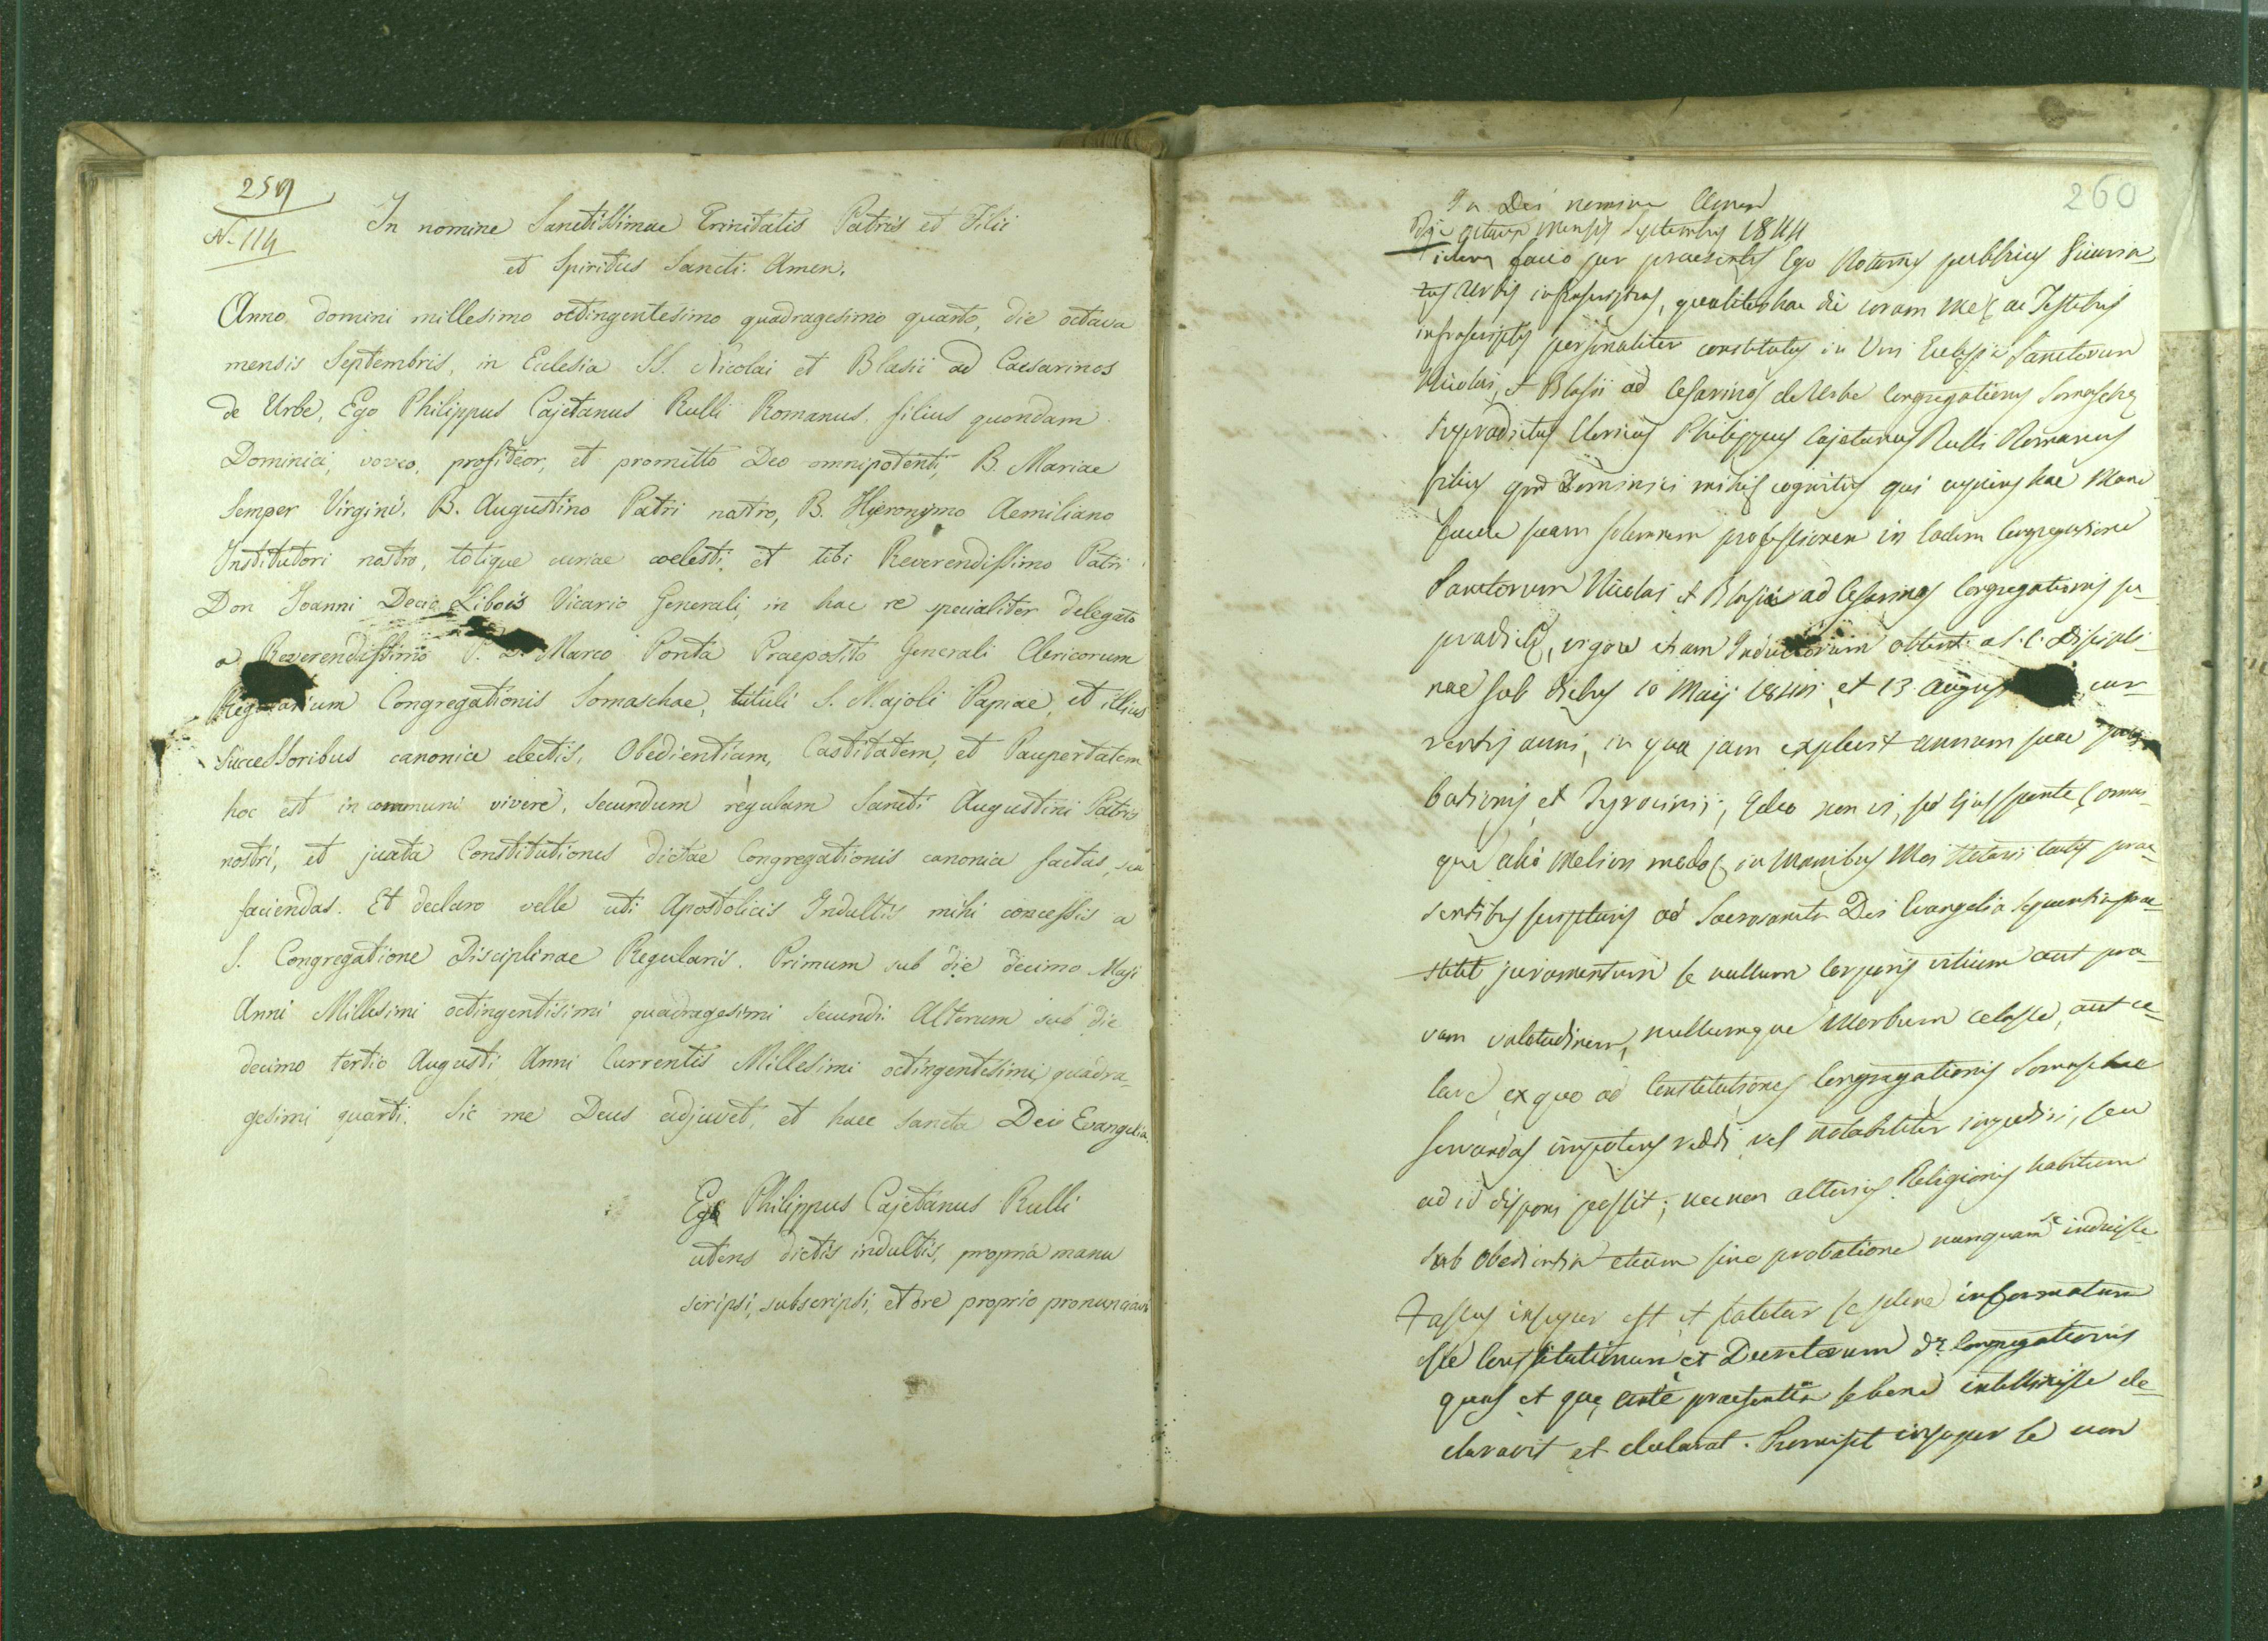 259
N. 114
In nomine Sanctissimae Trinitatis Patris et Filii
et Spiritus Sancti. Amen.
Anno domini millesimo octingentesimo quadragesimo quarto, die octava
mensis Septembris, in Eclesia SS. Nicolai et Blasii ad Caesarinos
de Urbe, Ego Philippus Cajetanus Rulli Romanus filius quondam
Dominici, voveo, profiteor, et promitto Deo omnipotenti, B. Mariae
Semper Virgini, B. Augustino Patri nostro, B. Hyeronymo Aemiliano
Institutori nostro, totique curiae coelesti, et tibi Reverendissimo Patri
Don Joanni Decio Libois Vicario Generali, in hac re specialiter delegato
a Reverendissimo P. D. Marco Ponta Praeposito Generali Clericorum
Congregationis Somaschae, tituli S. Majoli Papiae, et illius
successoribus canonice electis, Obedientiam, Castitatem, et Paupertatem
hoc est in communi vivere, secundum regulam Sancti Augustini Patris
nostri, et juxta Constitutiones dictae Congregationis canonice factas, seu
faciendas. Et declaro velle uti Apostolicis Indultis mihi concessis a
S. Congregatione Disciplinae Regularis. Primum sub die decimo Maji
Anni Millesimi octingentisimi quadragesimi secundi. Alterum sub die
decimo tertio Augusti Anni Currentis Millesimi octingentesimi, quadra-
gesimi quarti. Sic me Deus adjuvet, et haec sancta Dei Evangelia.
Ego Philippus Cajetanus Rulli
utens dictis indultis, propria manu
scripsi, subscripsi, et ore proprio pronunciavi
260
In Dei nomine Amen
Die octava Mensis Septembris 1844
Fidem facio per praesentes Ego Notarius publicus Vicaria-
tus Urbis infrascriptus, qualiter hac die coram me, ac Testibus
infrascriptis personaliter constitutus in Ven Eclesia Sanctorum
Nicolai, et Blasii ad Cesarinos de Urbe Congregationis Somaschae
supradictus Clericus Philippus Cajetanus Rulli Romanus
filius qm Dominici mihi cognitus qui cupiens hac Mane
facere suam solemnem professionem in Eadem Congregatione
Sanctorum Nicolai et Blasii ad Cesarinos Congregationis su-
pradictae, vigore etiam Indultorum obtent. a S. C. Discipli-
nae sub diebus 10 Maij et 13 cur-
rentis anni, in qua jam explevit annum suae pro-
bationis et Tyrocinii, Ideo non vi, sed ejus sponte, omni-
que alio meliori modo, in manibus Mei Notarii tactis prae-
sentibus scripturis ad Sacrosancta Dei Evangelia prae-
stitit juramentum se nullum Corporis vitium aut pra-
vam valetudinem, nullumque Morbum celasse, aut ce-
lare, ex quo ad Constitutiones Congregationis Somaschae
servandas impotens reddi, vel notabiliter impediri, seu
ad id disponi possit; necnon alterius Religionis habitum
sub Obedientia etiam sine probatione nunquam se induisse
Fassus insuper est et fatetur se plene informatum
esse Constitutionum et Decretorum de Congregationis
quas et quae ante praesentia se bene intellexisse de-
claravit et declarat. Promisit insuper se non